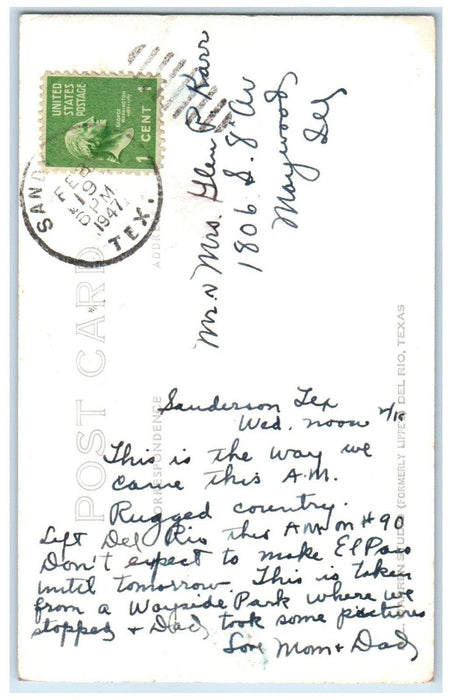 UNITED STATES POSTAGE
GEORGE WASHINGTON
1 CENT 1
SAND
FEB
19
PM
1947
TEX.
POST CARD
ADDRESS
CORRESPONDENCE
STUDIO (FORMERLY LIPPE) DEL RIO, TEXAS
Mr & Mrs. Glen R Karr
1806 S. 8" Av
Maywood
Ill
Sanderson Tex
Wed. noon
This is the way we
came this A.M.
Rugged country.
Left Del Rio this AM on #90
Don't expect to make El Paso
until tomorrow. This is taken
from a Wayside Park where we
stopped + Dad took some pictures
Love Mom + Dad